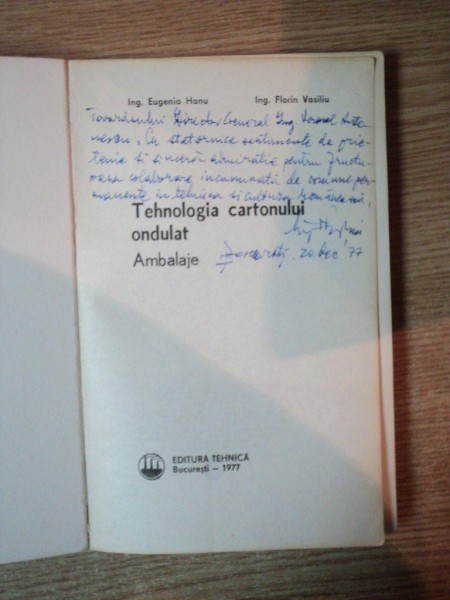 Ing. Eugenia Hanu Ing. Florin Vasiliu
Tovarășului Director General Ing.
"Cu statornice sentimente de prie-
tenie și sinceră admirație pentru fructu-
oasa colaborare de
în tehnica și cultura românească,
Tehnologia cartonului
ondulat
București, 20 dec '77
Ambalaje
EDITURA TEHNICĂ
București — 1977